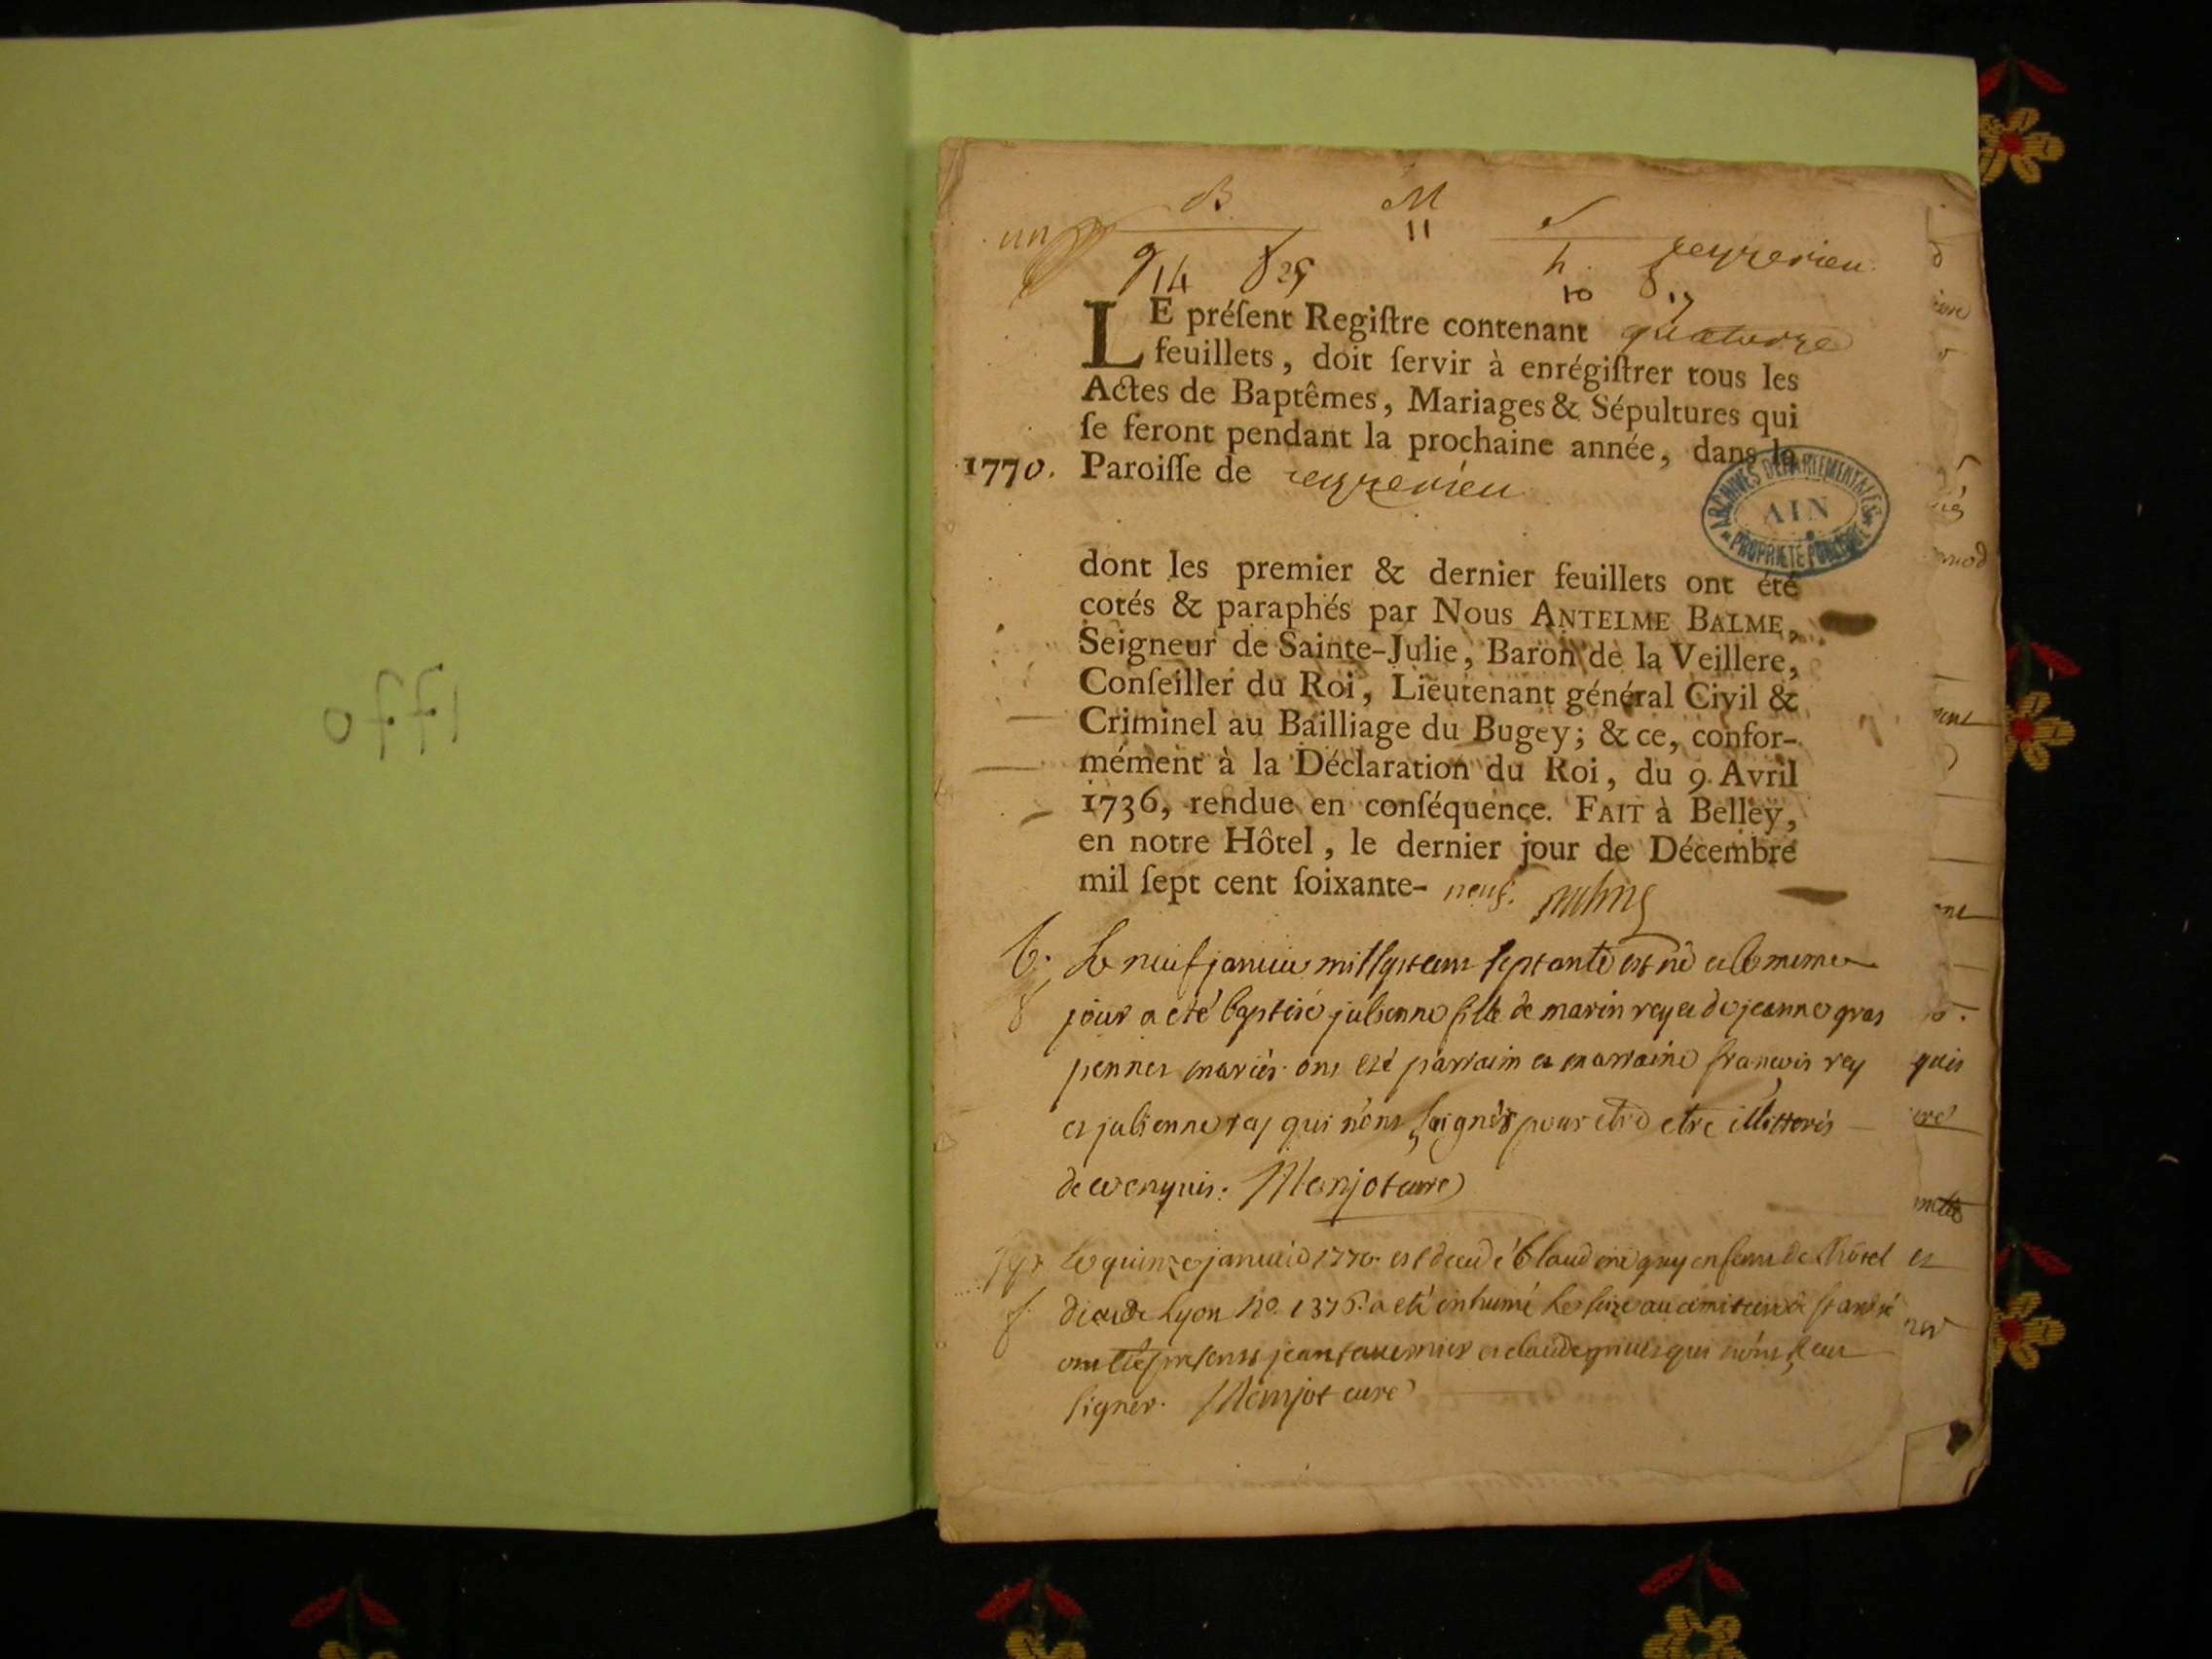 1770
un B M S
11
g 14 f 25 h 10 f 17
peyzerieu
LE préſent Regiſtre contenant quatorze
feuillets, doit ſervir à enrégiſtrer tous les
Actes de Baptêmes, Mariages & Sépultures qui
ſe feront pendant la prochaine année, dans la
1770. Paroiſſe de ceyzerieu
ARCHIVES DÉPARTEMENTALES
AIN
PROPRIÉTÉ PUBLIQUE
dont les premier & dernier feuillets ont été
cotés & paraphés par Nous ANTELME BALME,
Seigneur de Sainte-Julie, Baron de la Veillere,
Conſeiller du Roi, Lieutenant général Civil &
Criminel au Bailliage du Bugey; & ce, confor-
mément à la Déclaration du Roi, du 9. Avril
1736, rendue en conſéquence. FAIT à Belley,
en notre Hôtel, le dernier jour de Décembre
mil ſept cent ſoixante- neuf. Balme
b. Le neuf janvier mil sept cens septante est né et le meme
f jour a eté baptisé julienne fille de marin rey et de jeanne gras
mariés ont eté parrain et marraine francois rey
et julienne rey qui n'ont signés pour etre illitterés
de ce enquis. Monjot curé
Le quinze janvier 1770. est decedé enfant de l'hôtel
dieu de Lyon No. 1376. a eté inhumé le seize au cimitiere
presents jean et claude qui n'ont sceu
signer. Monjot curé